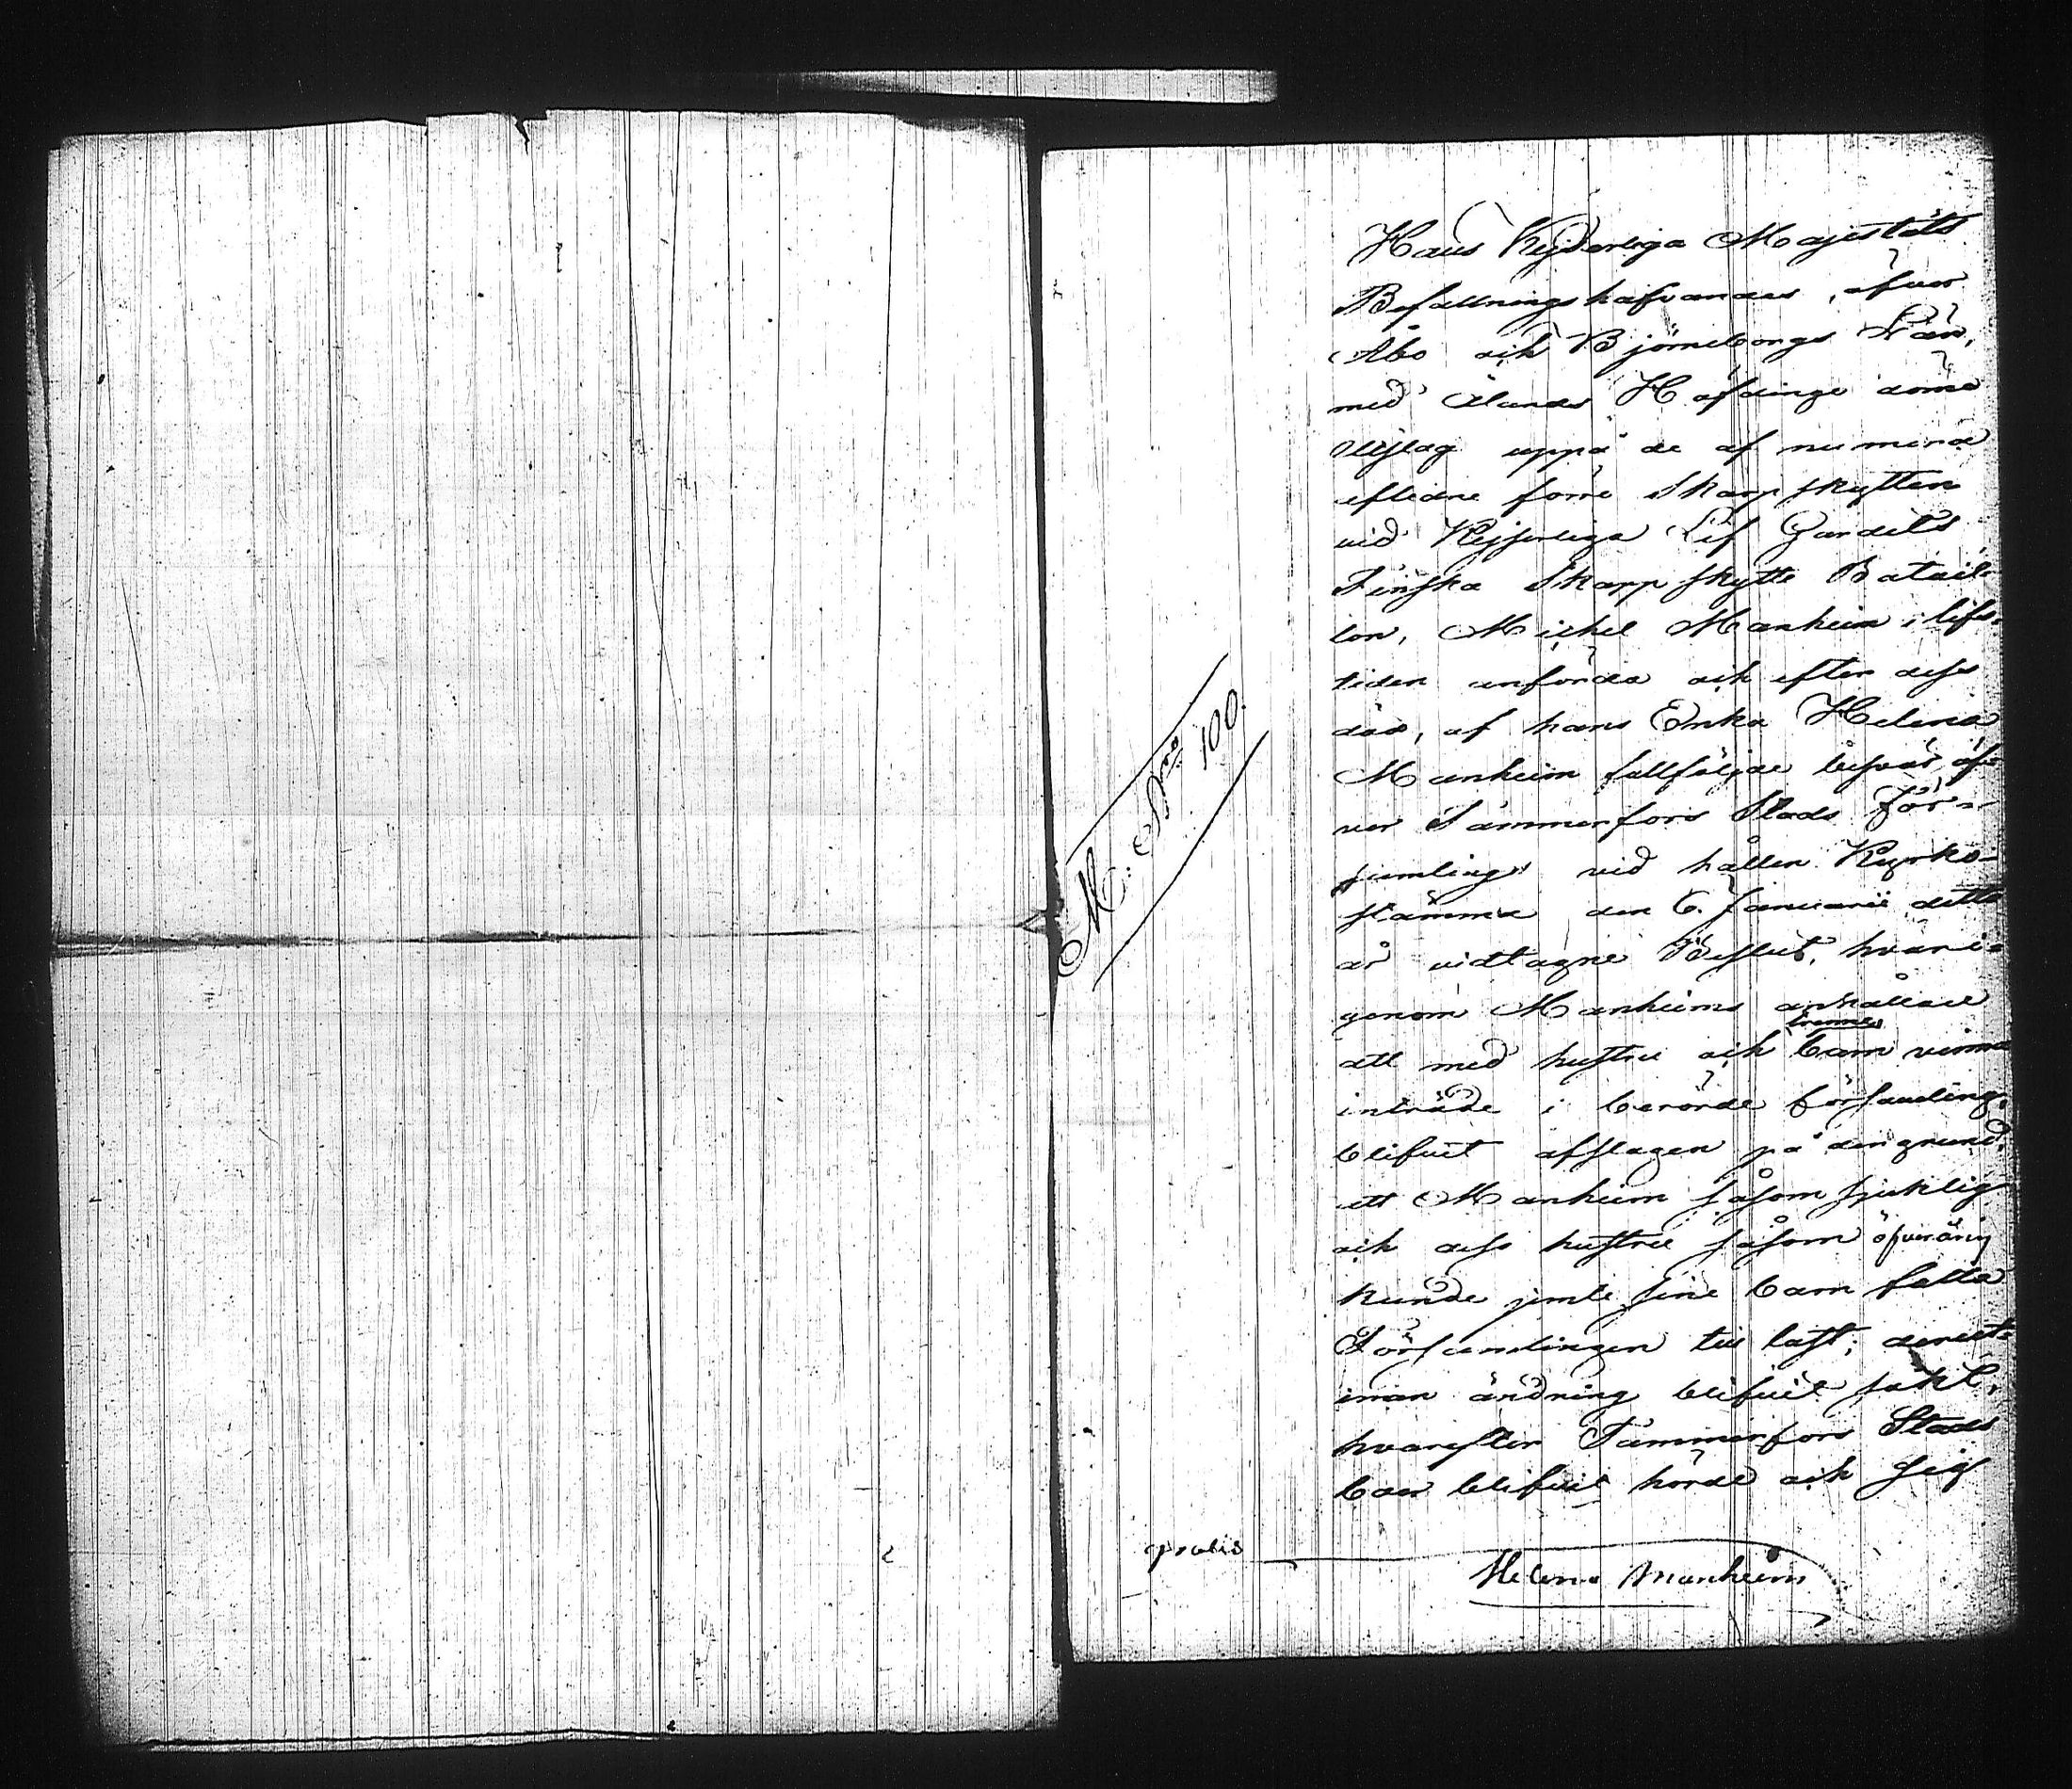 Hans Kejserliga Majestäts
Befallningshafvandes, öfver
Åbo och Björneborgs Län,
med Ålands Höfdinge döme
Utslag uppå de af numera
aflidne förre Skarpskytten
vid Kejserliga Lif Gardets
Finska Skarpskytte Batail-
lon, Michel Manheim i lifs-
tiden anförda och efter dess
död, af hans Enka Helena
Manheim fullföljde besvär öf-
ver Tammerfors Stads För-
samlings vid hållen Kyrko-
stämma den 6. Januarii detta
år vidtagne Beslut, hvari-
genom Manheims anhållan
att med hustru och trenne barn vinna
inträde i berörde församling,
blifvit afslagen på den grund,
att Manheim såsom sjuklig
och dess hustru såsom öfverårig
kunde jemte sine barn falla
Församlingen till last; deruti-
innan ändring blifvit sökt,
hvarefter Tammerfors Stads
boer blifvit hörde och sig
M. N:o 100.
gratis
Helena Manheim